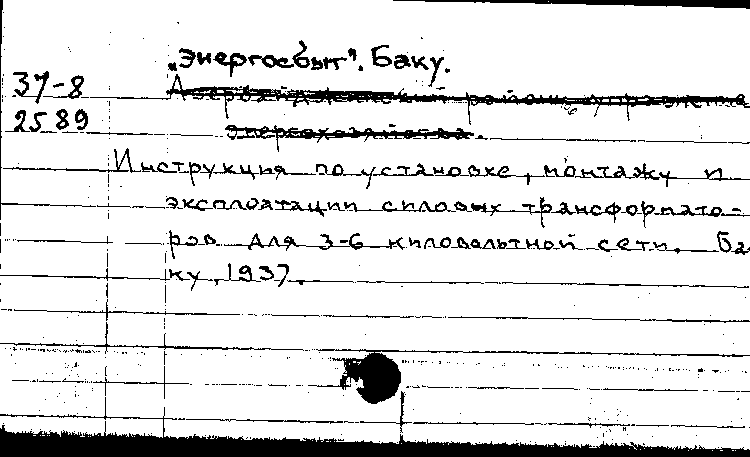 „Энергосбыт". Баку.
37-8
Азербайджанский районн. управлен.
2589
энергохозяйства.
Инструкция по установке, монтажу и
эксплоатации силовых трансформато-
ров для 3-6 киловольтной сети. Ба-
ку, 1937.